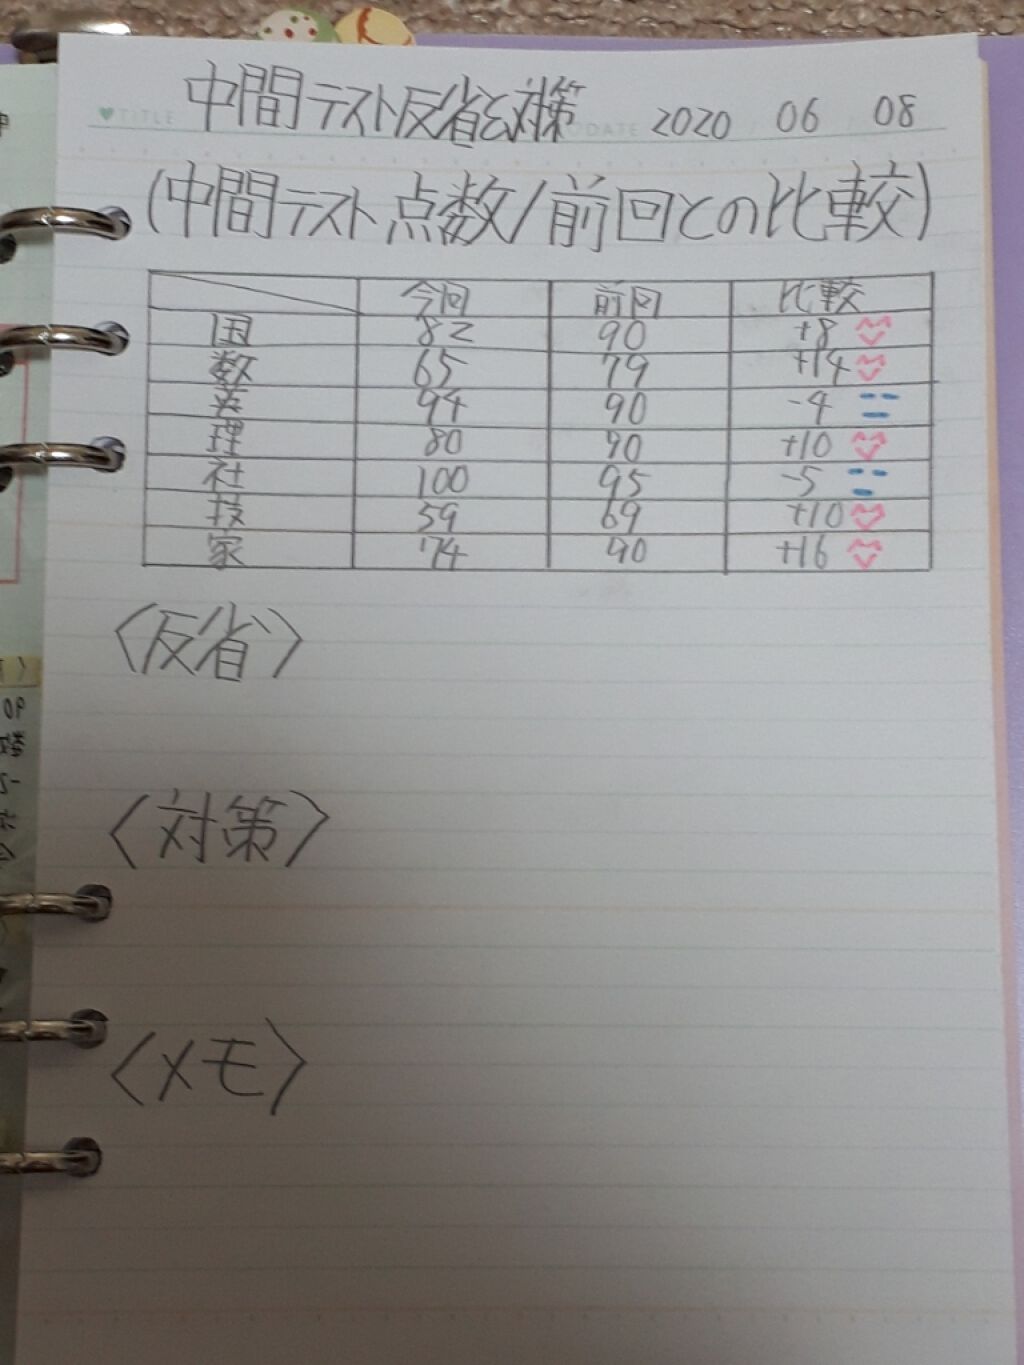 TITLE 中間テスト反省&対策 DATE 2020 06 08
(中間テスト点数/前回との比較)
今回 前回 比較
国 82 90 +8
数 65 79 +14
英 94 90 -4
理 80 90 +10
社 100 95 -5
技 59 69 +10
家 74 90 +16
〈反省〉
〈対策〉
〈メモ〉